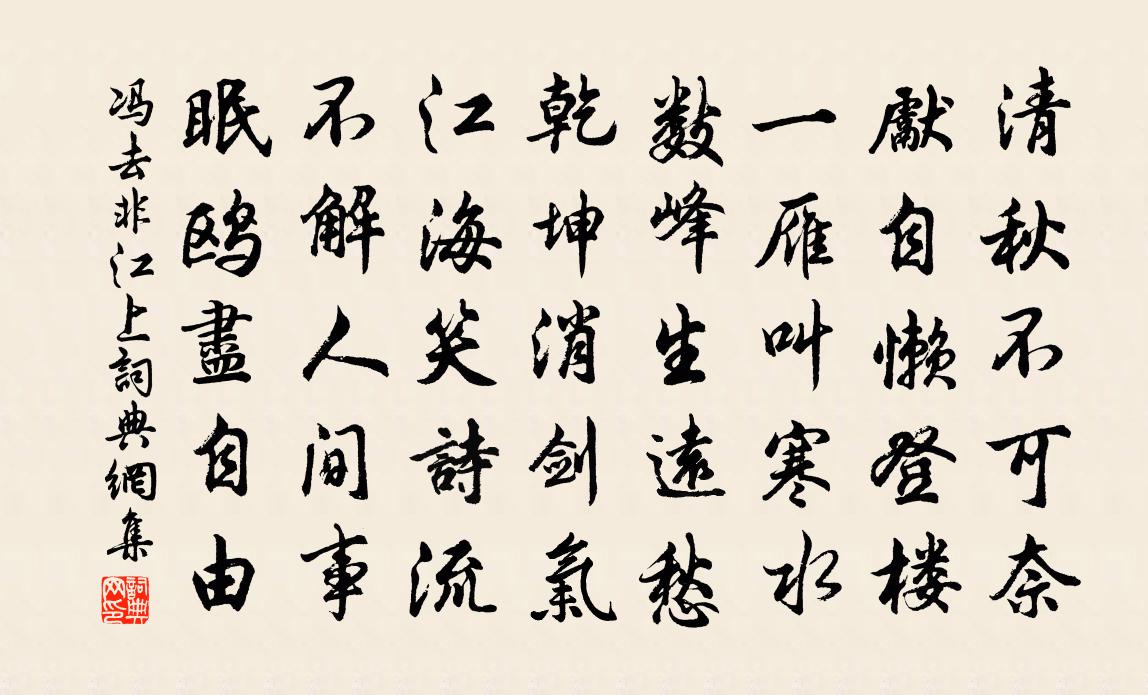 清秋不可奈
獻自懶登楼
一雁叫寒水
数峰生遠愁
乾坤消剑氣
江海笑詩流
不解人间事
眠鸥盡自由
冯去非江上詞典網集
詞典网印